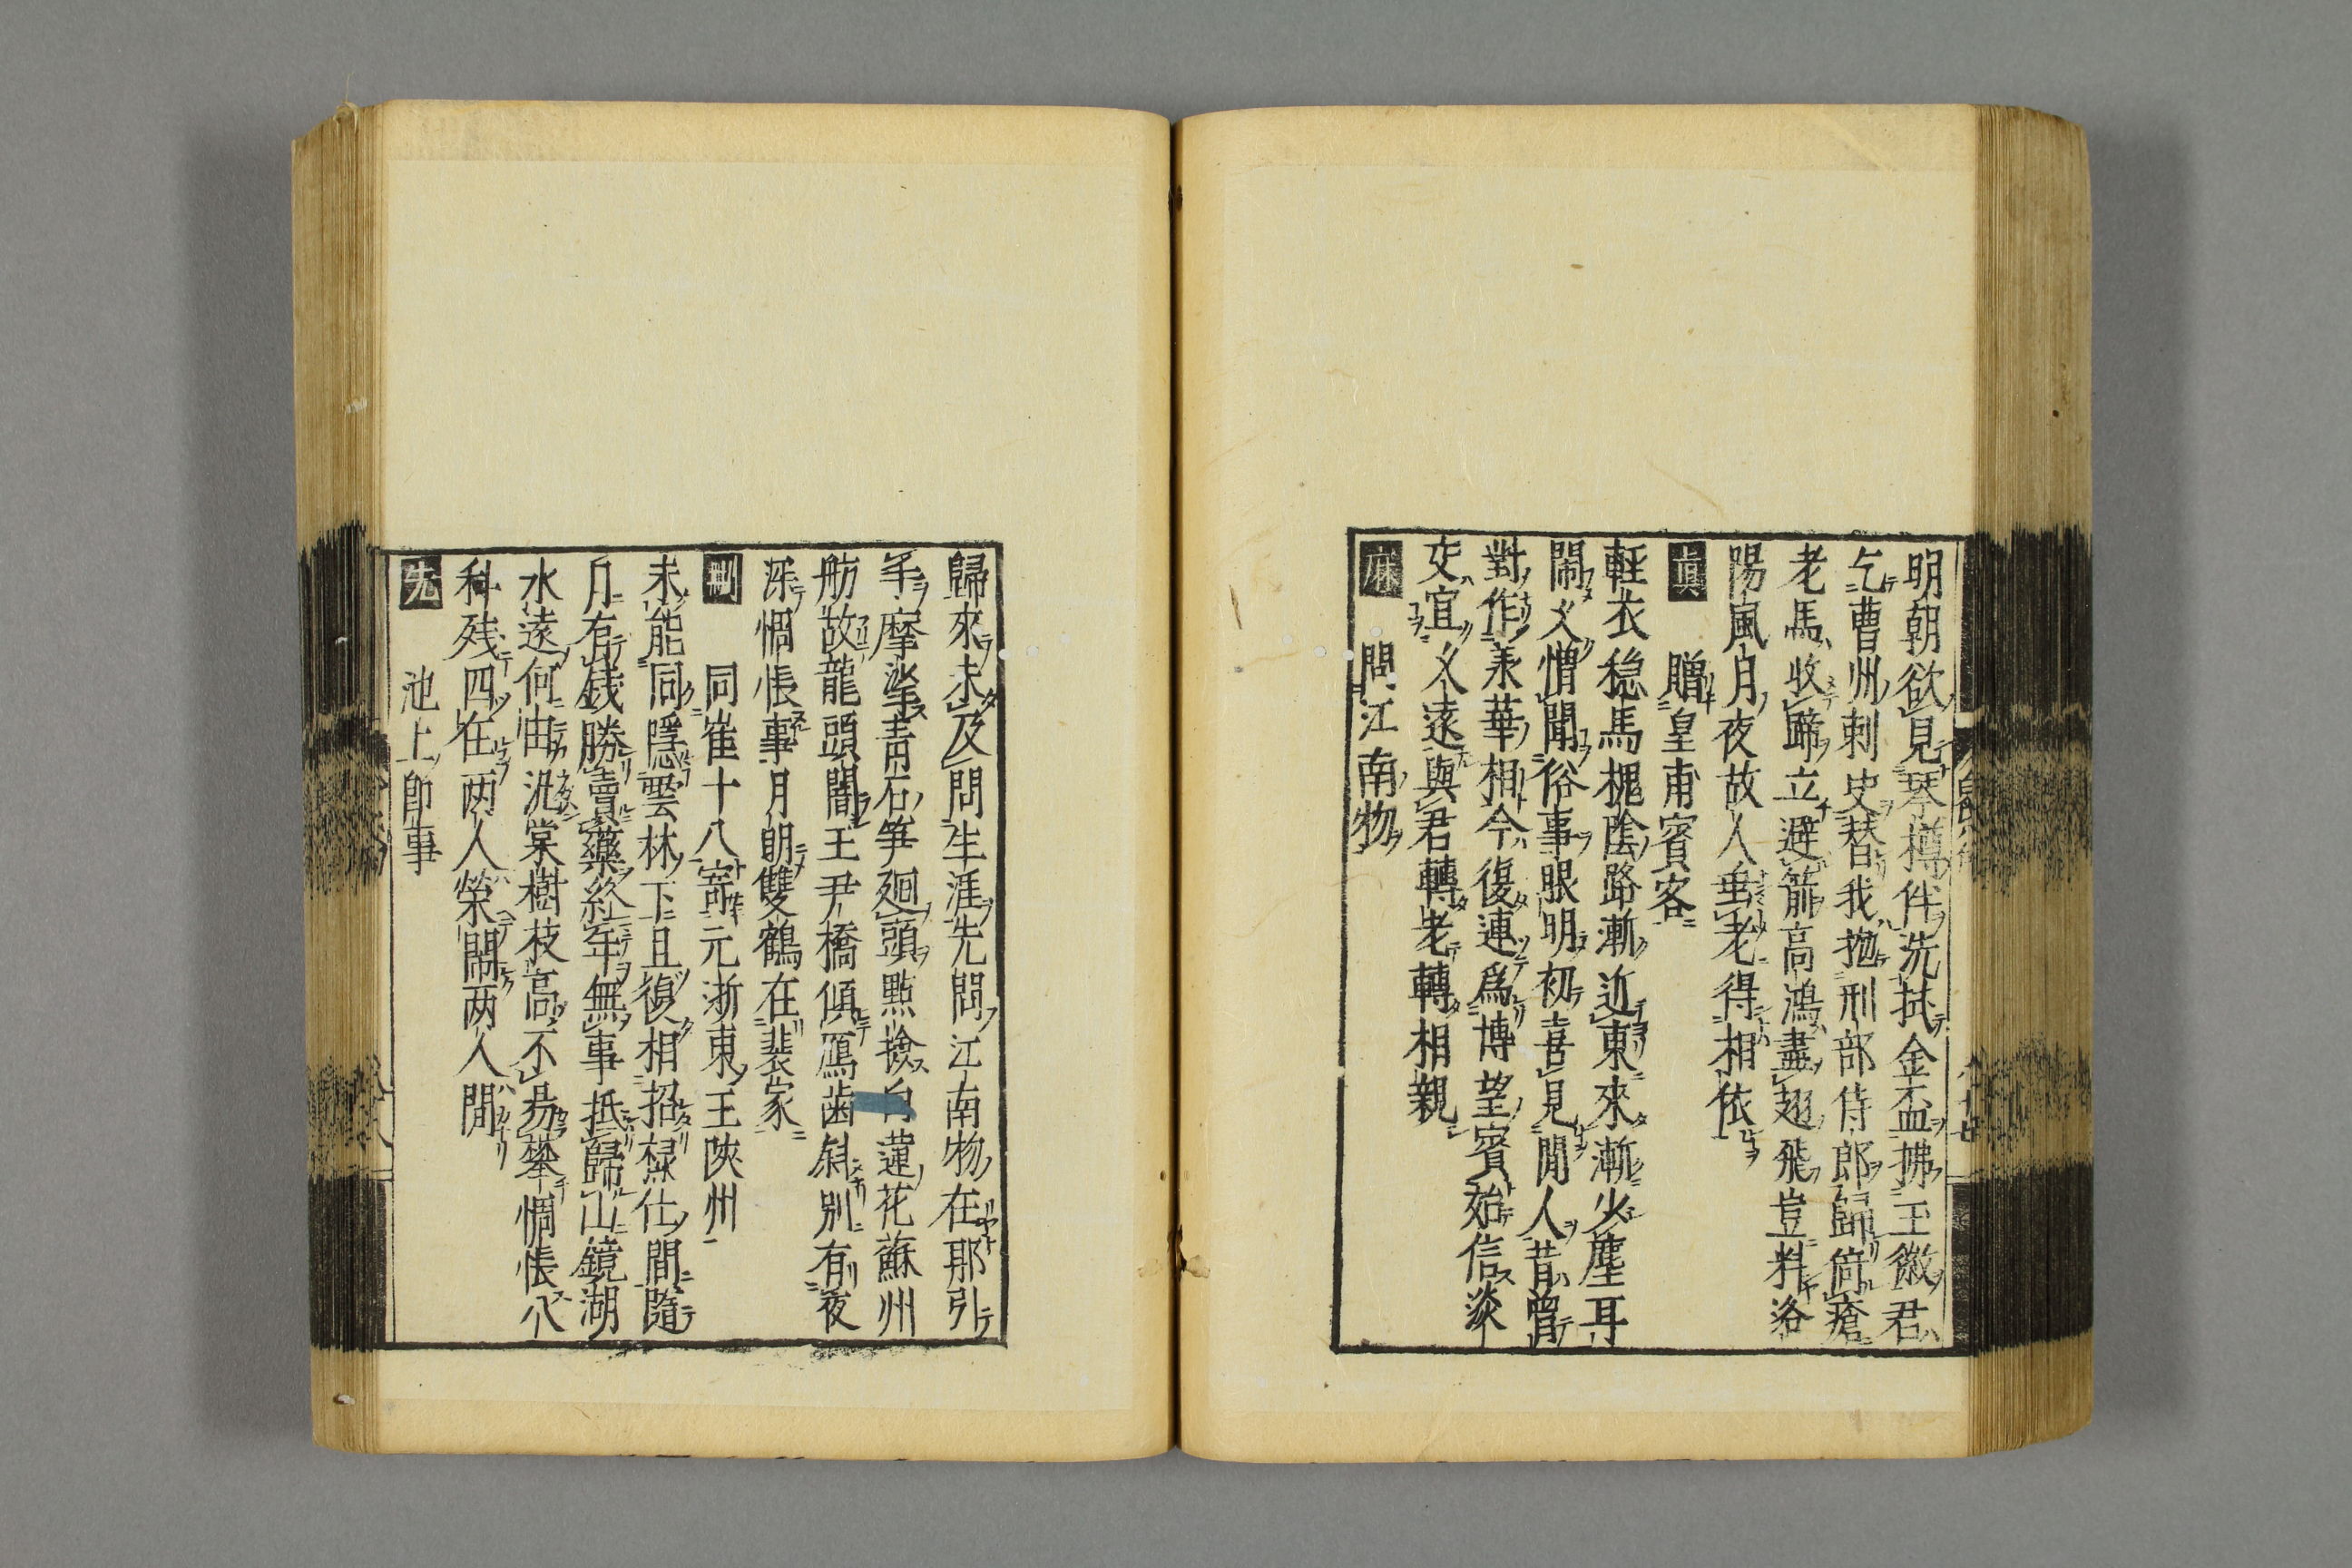 明朝欲見琴樽伴洗拭金盃拂玉徽君
乞曹州刺史替我抛刑部侍郎歸倚瘡
老馬收蹄立避箭高鴻盡翅飛豈料洛
陽風月夜故人垂老得相依
眞
贈皇甫賓客
輕衣穏馬槐陰路漸近東來漸少塵耳
閙久憎聞俗事眼明初喜見閒人昔曾
對作羕華相今復連爲博望賓始信淡
交宜久遠與君轉老轉相親
麻
問江南物
歸來未及問生涯先問江南物在耶引
手摩挲青石笋廻頭點撿白蓮花蘇州
舫故龍頭闇王尹橋傾鴈齒斜別有夜
深惆悵事月明雙鶴在裴家
刪
同崔十八寄元浙東王陝州
未能同隱雲林下且復相招禄仕間隨
月有錢勝賣藥終年無事抵歸山鏡湖
水遠何由汎棠樹枝高不易攀惆悵八
科残四在两人榮閙两人閒
先
池上即事